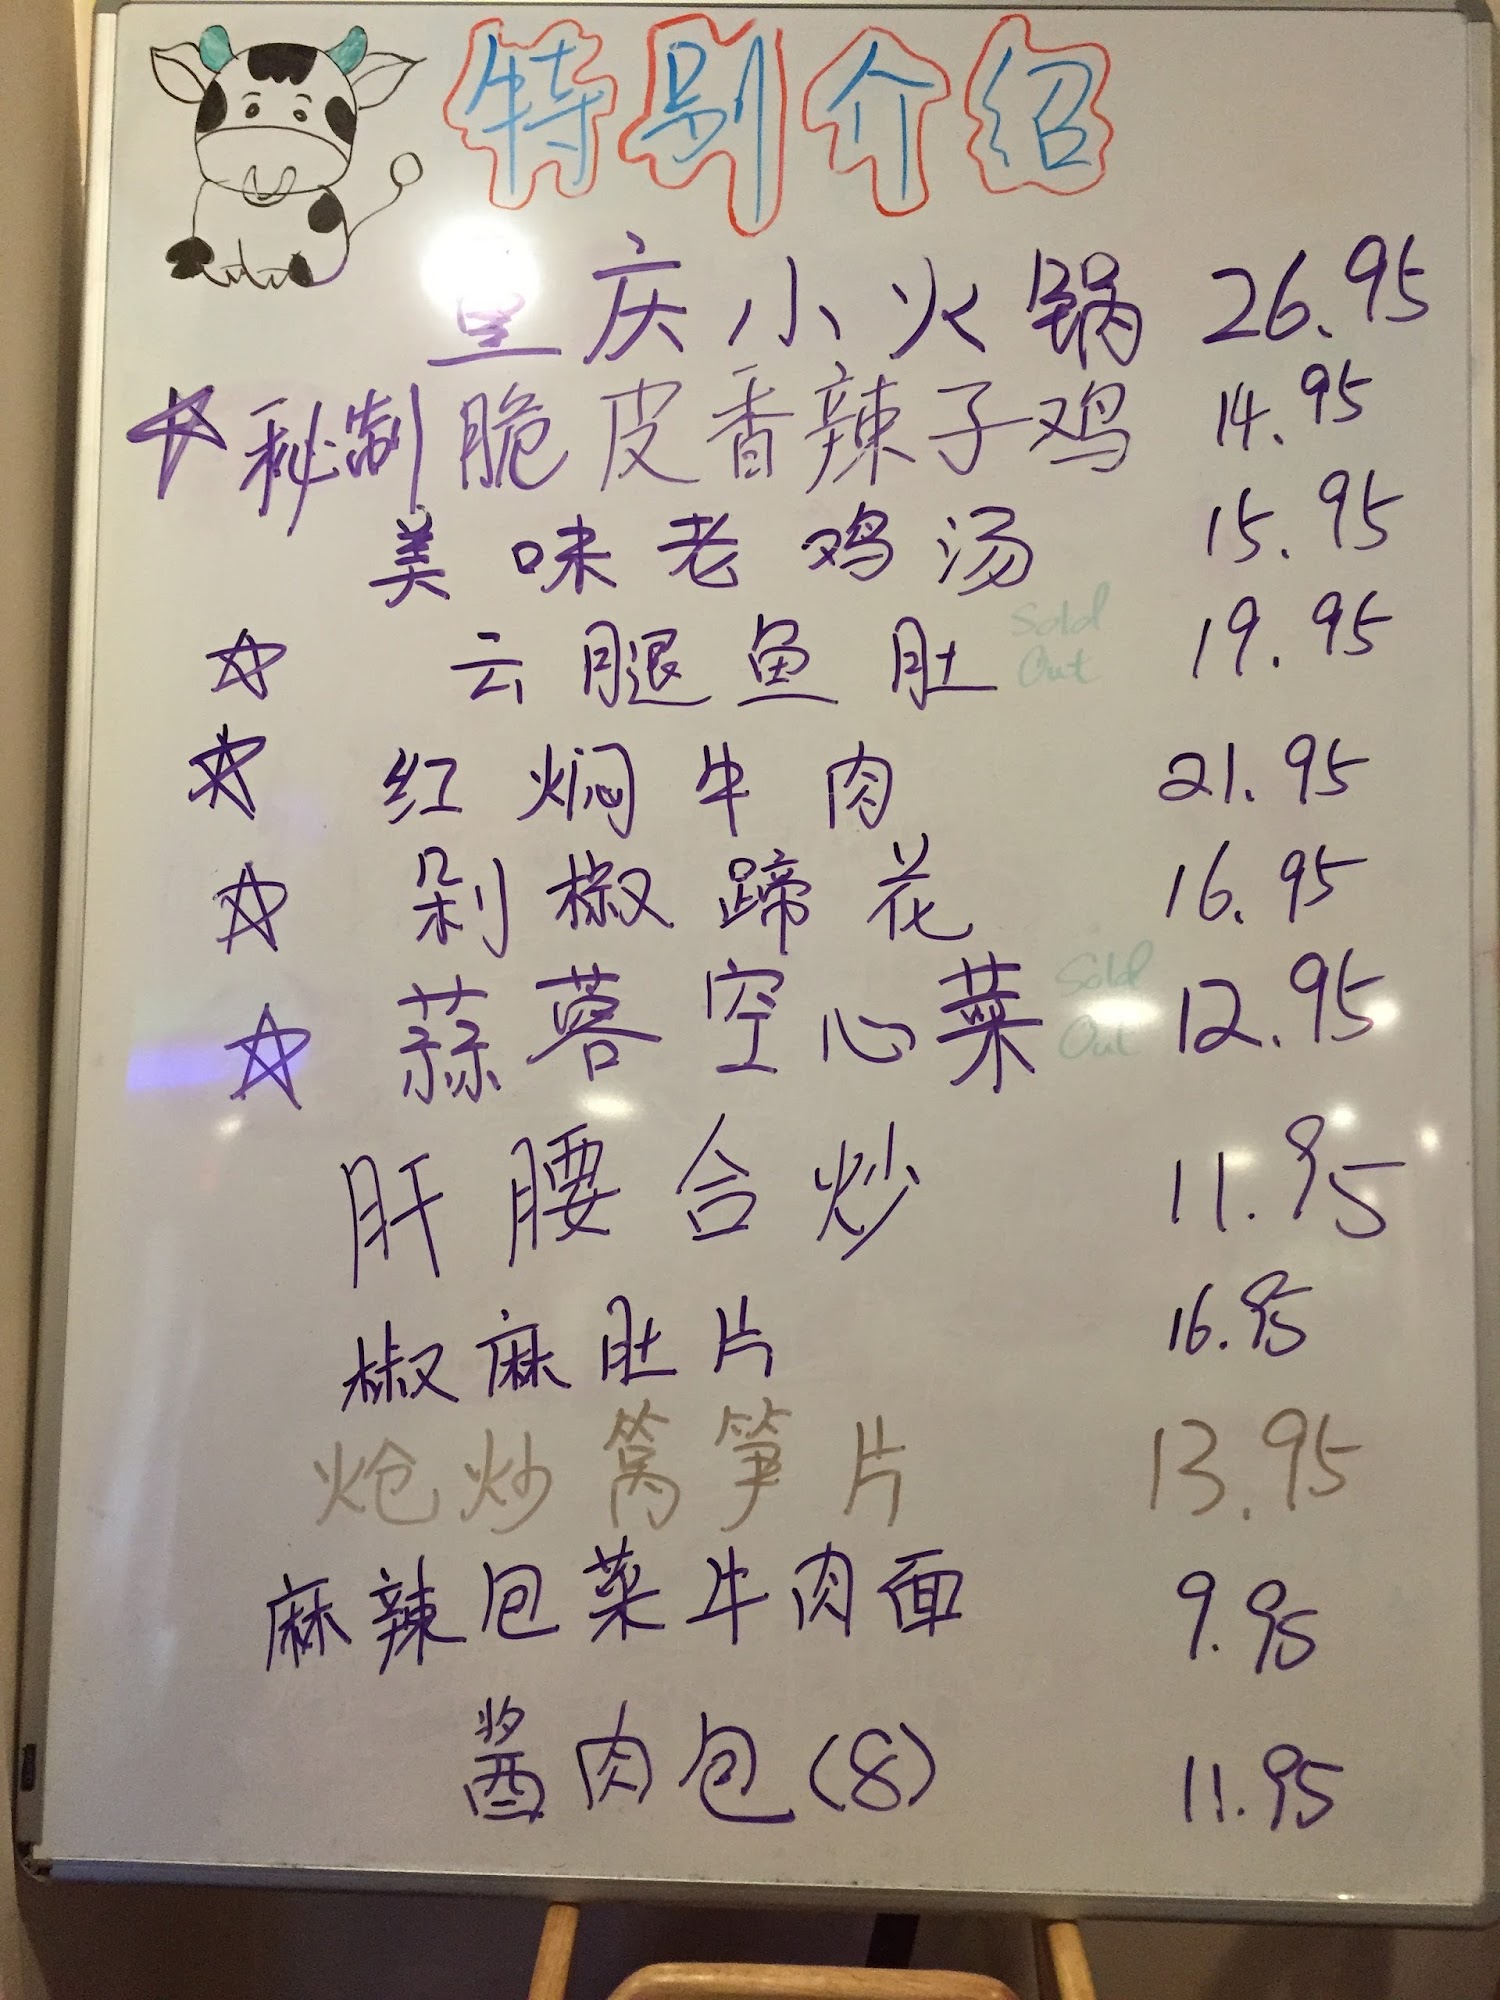 特别介绍
重庆小火锅 26.95
☆秘制脆皮香辣子鸡 14.95
美味老鸡汤 15.95
☆ 云腿鱼肚 Sold Out 19.95
☆ 红焖牛肉 21.95
☆ 剁椒蹄花 16.95
☆ 蒜蓉空心菜 Sold Out 12.95
肝腰合炒 11.95
椒麻肚片 16.95
炝炒莴笋片 13.95
麻辣包菜牛肉面 9.95
酱肉包(8) 11.95